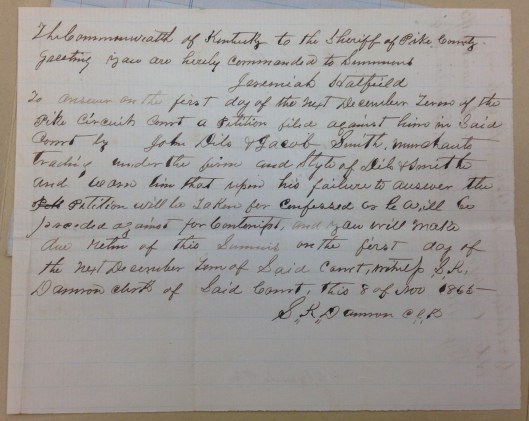 The Commonwealth of Kentucky to the Sheriff of Pike County
Greeting you are hereby commanded to Summons
Jeremiah Hatfield
To answer on the first day of the next December Term of the
Pike Circuit Court a Petition filed against him in Said
Court by John Dils & Jacob Smith, merchants
trading under the firm and Style of Dils & Smith
and warn him that upon his failure to answer the
Petition will be taken for confessed or he will be
proceded against for Contempt, and you will make
due return of this Summons on the first day of
the next December Term of Said Court, S. K.
Damron clerk of Said Court, this 8 of Nov 1865
S. K. Damron